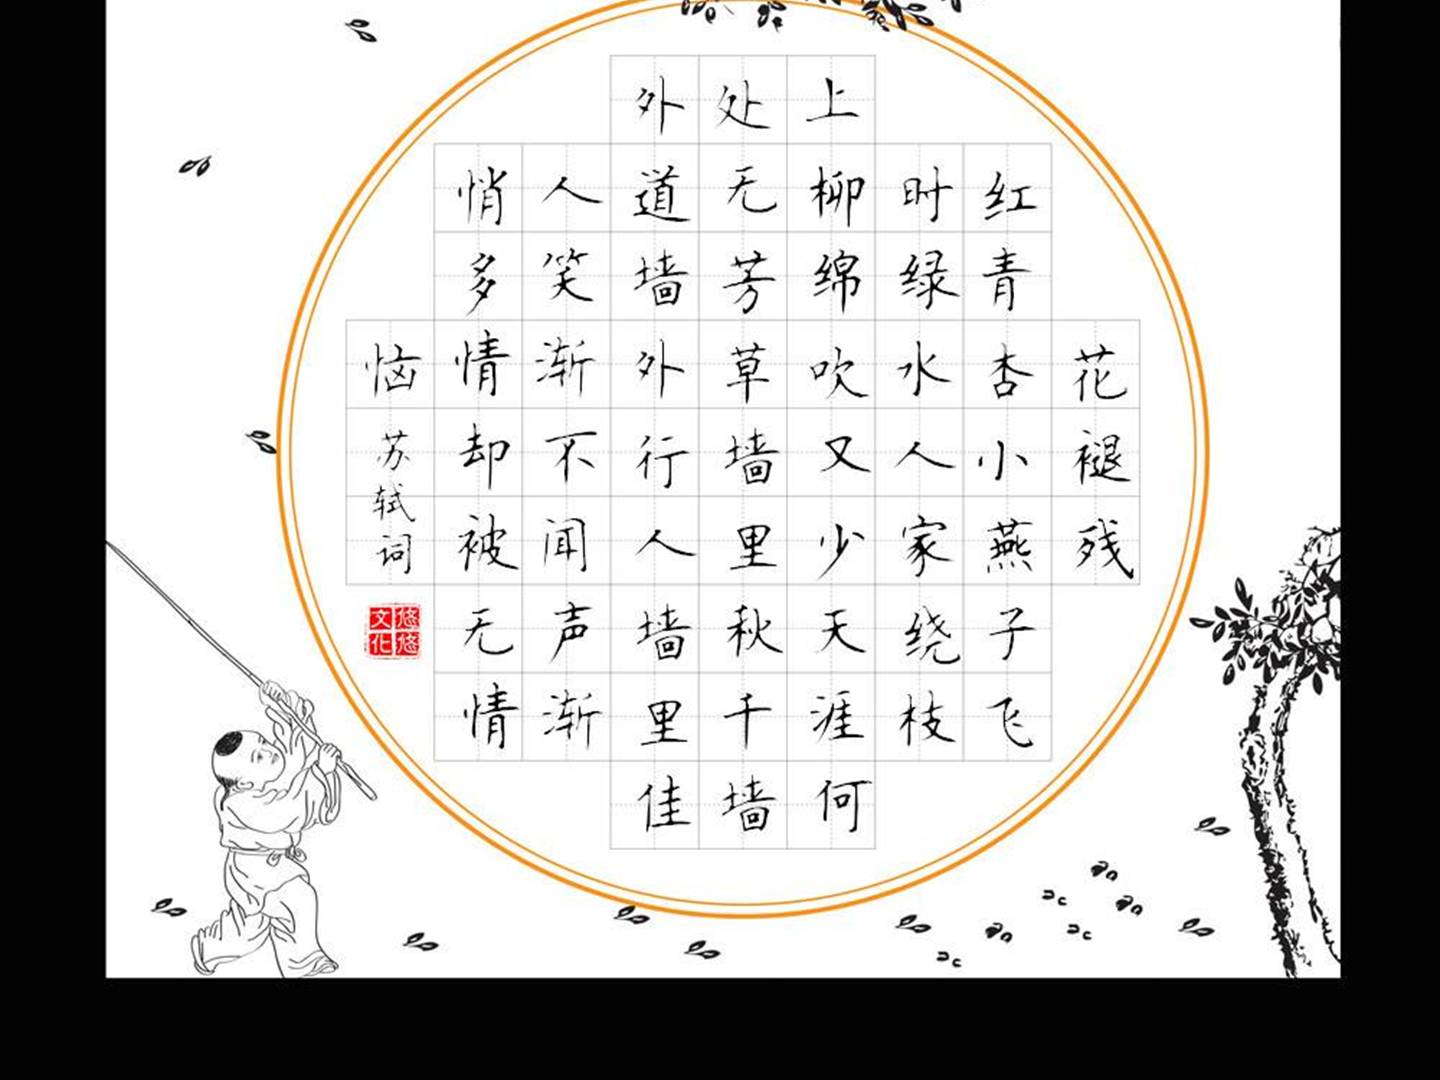 花褪残
红青杏小燕子飞
时绿水人家绕枝
上柳绵吹又少天涯何
处无芳草墙里秋千墙
外道墙外行人墙里佳
人笑渐不闻声渐
悄多情却被无情
恼
苏轼词
悠悠
文化